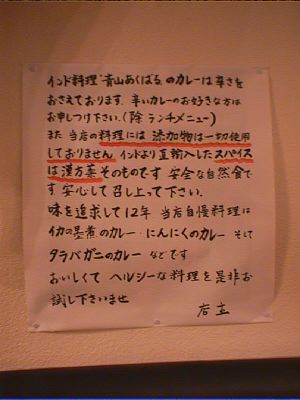 インド料理"青山あくばる"のカレーは辛さを
おさえております。辛いカレーのお好きな方は
お申しつけ下さい。(除 ランチメニュー)
また 当店の料理には 添加物は一切使用
しておりません。インドより直輸入したスパイス
は漢方薬そのものです 安全な自然食で
す。安心して召し上って下さい。
味を追求して12年 当店自慢料理は
イカの墨煮のカレー・にんにくのカレー そして
タラバガニのカレー などです
おいしくて ヘルシーな料理を是非お
試し下さいませ
店主